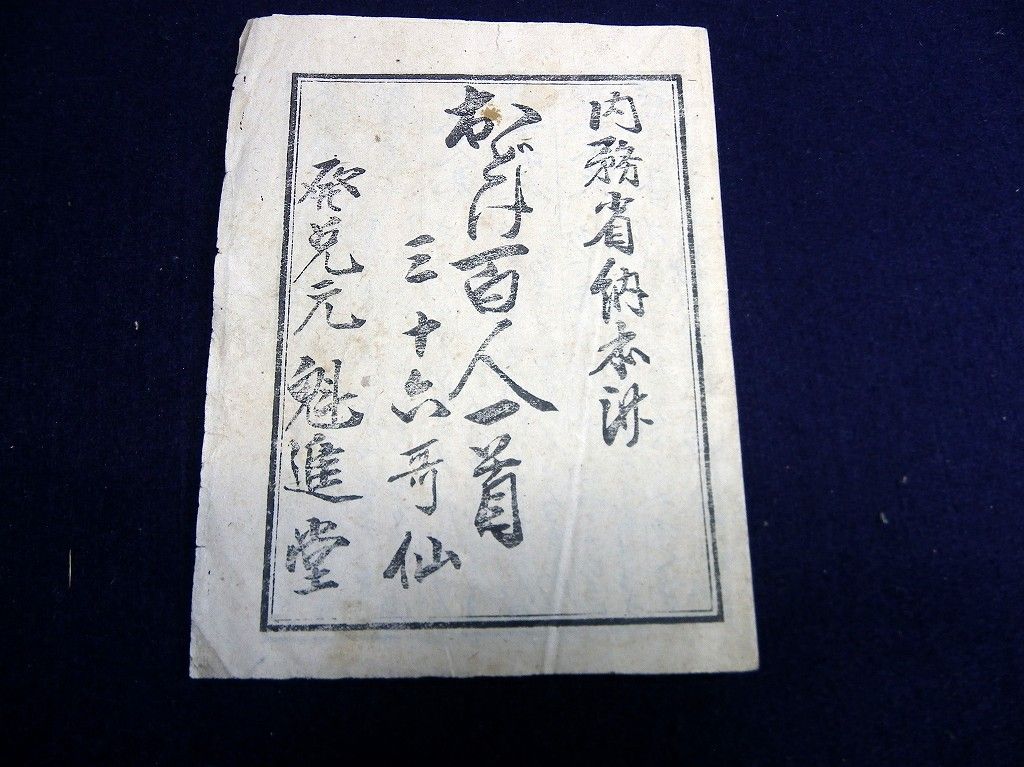 内務省納本済
おどけ百人一首
三十六哥仙
発兌元 魁進堂